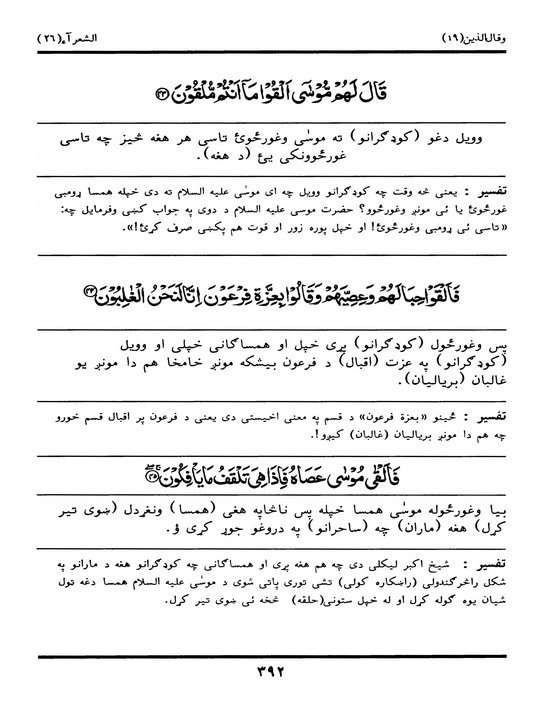 وقال الذين(۱۹)
الشعرآء(۲٦)
قَالَ لَهُمْ مُّوْسٰٓى اَلْقُوْا مَآ اَنْتُمْ مُّلْقُوْنَ ﴿۴۳﴾
وویل دغو (کوډګرانو) ته موسٰی وغورځوئ تاسې هر هغه څیز چه تاسې
غورځوونکی یئ (د هغه).
تفسیر : یعنی څه وقت چه کوډګرانو وویل چه ای موسٰی علیه السلام ته دی خپله همسا ړومبی
غورځوئ یا ئی مونږ وغورځوو؟ حضرت موسی علیه السلام د دوی په جواب کښی وفرمایل چه:
«تاسې ئی ړومبی وغورځوئ! او خپل پوره زور او قوت هم پکښی صرف کړئ!».
فَاَلْقَوْا حِبَالَهُمْ وَعِصِيَّهُمْ وَقَالُوْا بِعِزَّةِ فِرْعَوْنَ اِنَّا لَنَحْنُ الْغٰلِبُوْنَ ﴿۴۴﴾
پس وغورځول (کوډګرانو) پړی خپل او همساګانی خپلی او وویل
(کوډګرانو) په عزت (اقبال) د فرعون بیشکه مونږ خامخا هم دا مونږ یو
غالبان (بریالیان).
تفسیر : ځینو «بعزة فرعون» د قسم په معنی اخیستی دی یعنی د فرعون پر اقبال قسم خورو
چه هم دا مونږ بریالیان (غالبان) کیږو!.
فَاَلْقٰى مُوْسٰى عَصَاهُ فَاِذَا هِيَ تَلْقَفُ مَا يَاْفِكُوْنَ ﴿۴۵﴾
بیا وغورځوله موسٰی همسا خپله پس ناڅاپه هغی (همسا) ونغړدل (ژوی تیر
کړل) هغه (ماران) چه (ساحرانو) په دروغو جوړ کړی ؤ.
تفسیر : شیخ اکبر لیکلی دی چه هم هغه پړی او همساګانی چه کوډګرانو هغه د مارانو په
شکل راڅرګندولی (راښکاره کولی) تشی توری پاتی شوی د موسٰی علیه السلام همسا دغه ټول
شیان یوه ګوله کړل او له خپل ستونی(حلقه) څخه ئی ژوی تیر کړل.
۳۹۲